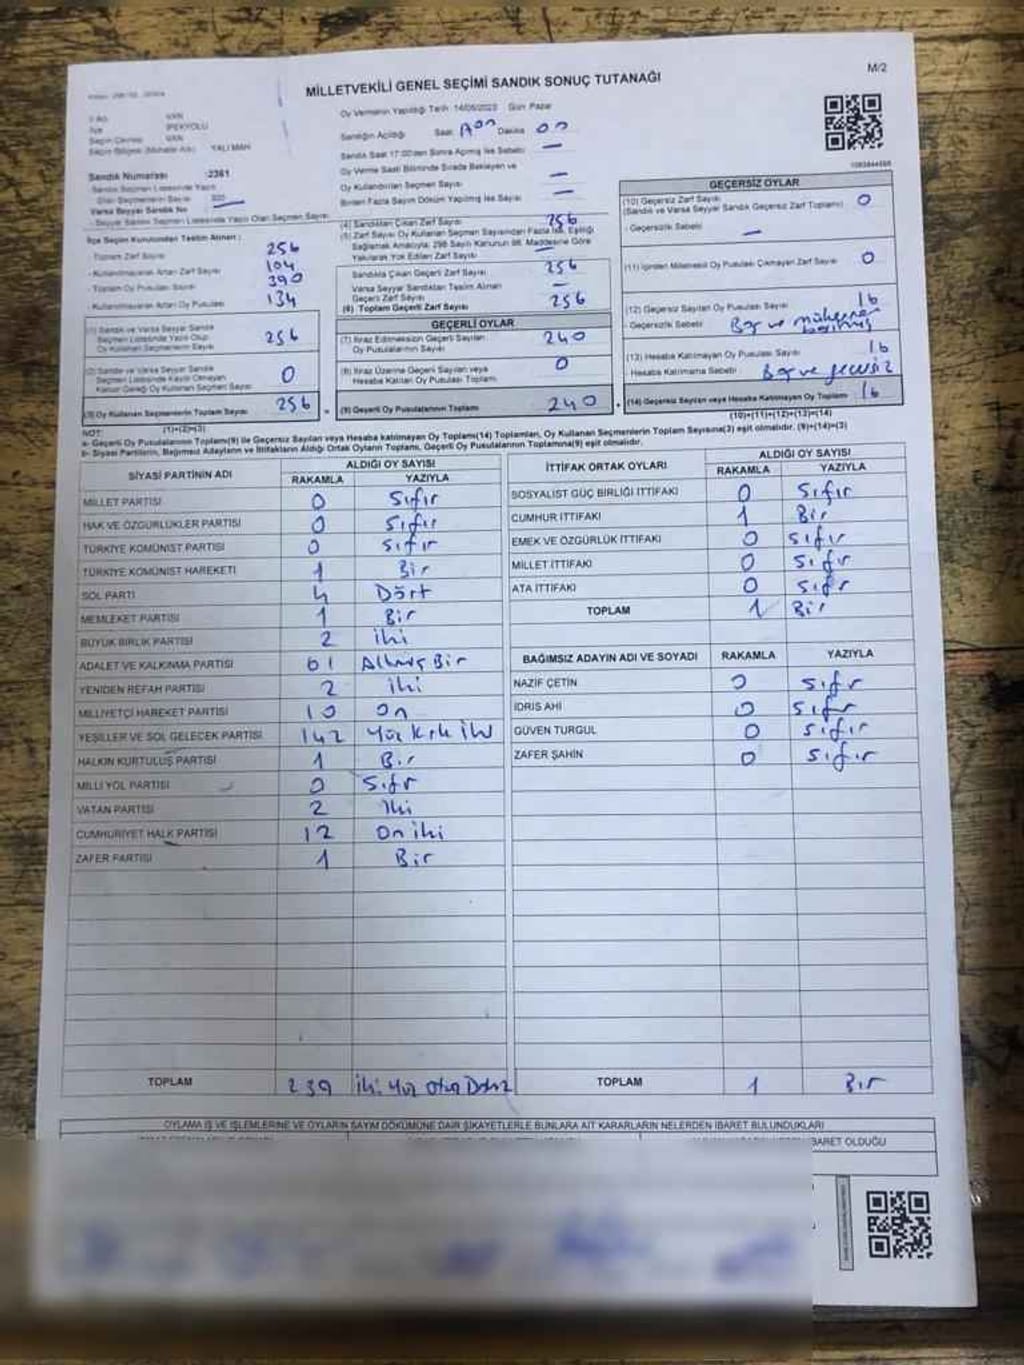 M/2
MİLLETVEKİLİ GENEL SEÇİMİ SANDIK SONUÇ TUTANAĞI
Oy Vermenin Yapıldığı Tarih 14/05/2023 Gün Pazar
VAN
İPEKYOLU
Seçim Çevresi VAN
Seçim Bölgesi (Mahalle Adı) YALI MAH
Sandığın Açıldığı Saat Dakika
Sandık Saat 17:00'den Sonra Açılmış İse Sebebi —
Oy Verme Saati Bitiminde Sırada Bekleyen ve
Oy Kullandırılan Seçmen Sayısı —
Birden Fazla Sayım Döküm Yapılmış İse Sayısı —
Sandık Numarası :2361
Sandık Seçmen Listesinde Yazılı
Olan Seçmenlerin Sayısı
Varsa Seyyar Sandık No —
- Seyyar Sandık Seçmen Listesinde Yazılı Olan Seçmen Sayısı
İlçe Seçim Kurulundan Teslim Alınan :
- Toplam Zarf Sayısı 256
- Kullanılmayarak Artan Zarf Sayısı 104
- Toplam Oy Pusulası Sayısı 390
- Kullanılmayarak Artan Oy Pusulası 134
(1) Sandık ve Varsa Seyyar Sandık
Seçmen Listesinde Yazılı Olup
Oy Kullanan Seçmenlerin Sayısı 256
(2) Sandık ve Varsa Seyyar Sandık
Seçmen Listesinde Kayıtlı Olmayan
Kanun Gereği Oy Kullanan Seçmen Sayısı 0
(3) Oy Kullanan Seçmenlerin Toplam Sayısı 256
(1)+(2)=(3)
(4) Sandıktan Çıkan Zarf Sayısı 256
(5) Zarf Sayısı Oy Kullanan Seçmen Sayısından Fazla İse, Eşitliği
Sağlamak Amacıyla; 298 Sayılı Kanunun 98. Maddesine Göre
Yakılarak Yok Edilen Zarf Sayısı —
Sandıkta Çıkan Geçerli Zarf Sayısı 256
Varsa Seyyar Sandıktan Teslim Alınan
Geçerli Zarf Sayısı —
(6) Toplam Geçerli Zarf Sayısı 256
GEÇERLİ OYLAR
(7) İtiraz Edilmeksizin Geçerli Sayılan
Oy Pusulalarının Sayısı 240
(8) İtiraz Üzerine Geçerli Sayılan veya
Hesaba Katılan Oy Pusulaları Toplamı 0
(9) Geçerli Oy Pusulalarının Toplamı 240
GEÇERSİZ OYLAR
(10) Geçersiz Zarf Sayısı 0
(Sandık ve Varsa Seyyar Sandık Geçersiz Zarf Toplamı)
- Geçersizlik Sebebi —
(11) İçinden Milletvekili Oy Pusulası Çıkmayan Zarf Sayısı 0
(12) Geçersiz Sayılan Oy Pusulası Sayısı 16
- Geçersizlik Sebebi Boş ve
(13) Hesaba Katılmayan Oy Pusulası Sayısı 16
Hesaba Katılmama Sebebi Boş ve geçersiz
(14) Geçersiz Sayılan veya Hesaba Katılmayan Oy Toplamı 16
(10)+(11)+(12)+(13)=(14)
NOT:
a- Geçerli Oy Pusulalarının Toplamı(9) ile Geçersiz Sayılan veya Hesaba katılmayan Oy Toplamı(14) Toplamları, Oy Kullanan Seçmenlerin Toplam Sayısına(3) eşit olmalıdır. (9)+(14)=(3)
b- Siyasi Partilerin, Bağımsız Adayların ve İttifakların Aldığı Ortak Oyların Toplamı, Geçerli Oy Pusulalarının Toplamına(9) eşit olmalıdır.
SİYASİ PARTİNİN ADI ALDIĞI OY SAYISI
RAKAMLA YAZIYLA
MİLLET PARTİSİ 0 Sıfır
HAK VE ÖZGÜRLÜKLER PARTİSİ 0 Sıfır
TÜRKİYE KOMÜNİST PARTİSİ 0 Sıfır
TÜRKİYE KOMÜNİST HAREKETİ 1 Bir
SOL PARTİ 4 Dört
MEMLEKET PARTİSİ 1 Bir
BÜYÜK BİRLİK PARTİSİ 2 iki
ADALET VE KALKINMA PARTİSİ 61 Altmış Bir
YENİDEN REFAH PARTİSİ 2 iki
MİLLİYETÇİ HAREKET PARTİSİ 10 On
YEŞİLLER VE SOL GELECEK PARTİSİ 142 Yüz Kırk iki
HALKIN KURTULUŞ PARTİSİ 1 Bir
MİLLİ YOL PARTİSİ 0 Sıfır
VATAN PARTİSİ 2 iki
CUMHURİYET HALK PARTİSİ 12 On iki
ZAFER PARTİSİ 1 Bir
TOPLAM 239 iki Yüz Otuz Dokuz
İTTİFAK ORTAK OYLARI ALDIĞI OY SAYISI
RAKAMLA YAZIYLA
SOSYALİST GÜÇ BİRLİĞİ İTTİFAKI 0 Sıfır
CUMHUR İTTİFAKI 1 Bir
EMEK VE ÖZGÜRLÜK İTTİFAKI 0 Sıfır
MİLLET İTTİFAKI 0 Sıfır
ATA İTTİFAKI 0 Sıfır
TOPLAM 1 Bir
BAĞIMSIZ ADAYIN ADI VE SOYADI RAKAMLA YAZIYLA
NAZİF ÇETİN 0 Sıfır
İDRİS AHİ 0 Sıfır
GÜVEN TURGUL 0 Sıfır
ZAFER ŞAHİN 0 Sıfır
TOPLAM 1 Bir
OYLAMA İŞ VE İŞLEMLERİNE VE OYLARIN SAYIM DÖKÜMÜNE DAİR ŞİKAYETLERLE BUNLARA AİT KARARLARIN NELERDEN İBARET BULUNDUKLARI
BARET OLDUĞU